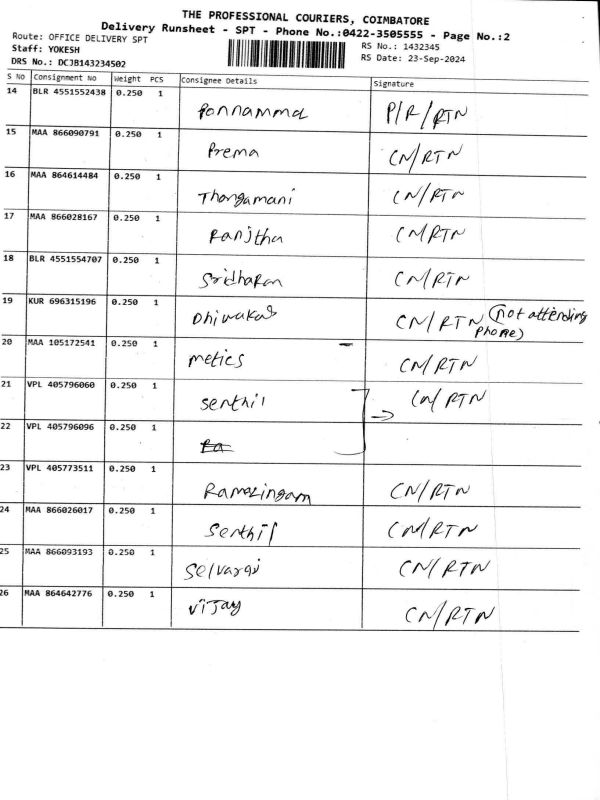 THE PROFESSIONAL COURIERS, COIMBATORE
Delivery Runsheet - SPT - Phone No.:0422-3505555 - Page No.:2
Route: OFFICE DELIVERY SPT
RS No.: 1432345
Staff: YOKESH
RS Date: 23-Sep-2024
DRS No.: DCJB143234502
S No Consignment No Weight PCS Consignee Details Signature
14 BLR 4551552438 0.250 1 Ponnamma P/R/RTN
15 MAA 866090791 0.250 1 Prema CN/RTN
16 MAA 864614484 0.250 1 Thangamani CN/RTN
17 MAA 866028167 0.250 1 Ranjtha CN/RTN
18 BLR 4551554707 0.250 1 Sridharan CN/RTN
19 KUR 696315196 0.250 1 Dhivakar CN/RTN (not attending
phone)
20 MAA 105172541 0.250 1 metics CN/RTN
21 VPL 405796060 0.250 1 senthil CN/RTN
22 VPL 405796096 0.250 1
23 VPL 405773511 0.250 1 Ramalingam CN/RTN
24 MAA 866026017 0.250 1 Senthil CN/RTN
25 MAA 866093193 0.250 1 Selvaraj CN/RTN
26 MAA 864642776 0.250 1 Vijay CN/RTN